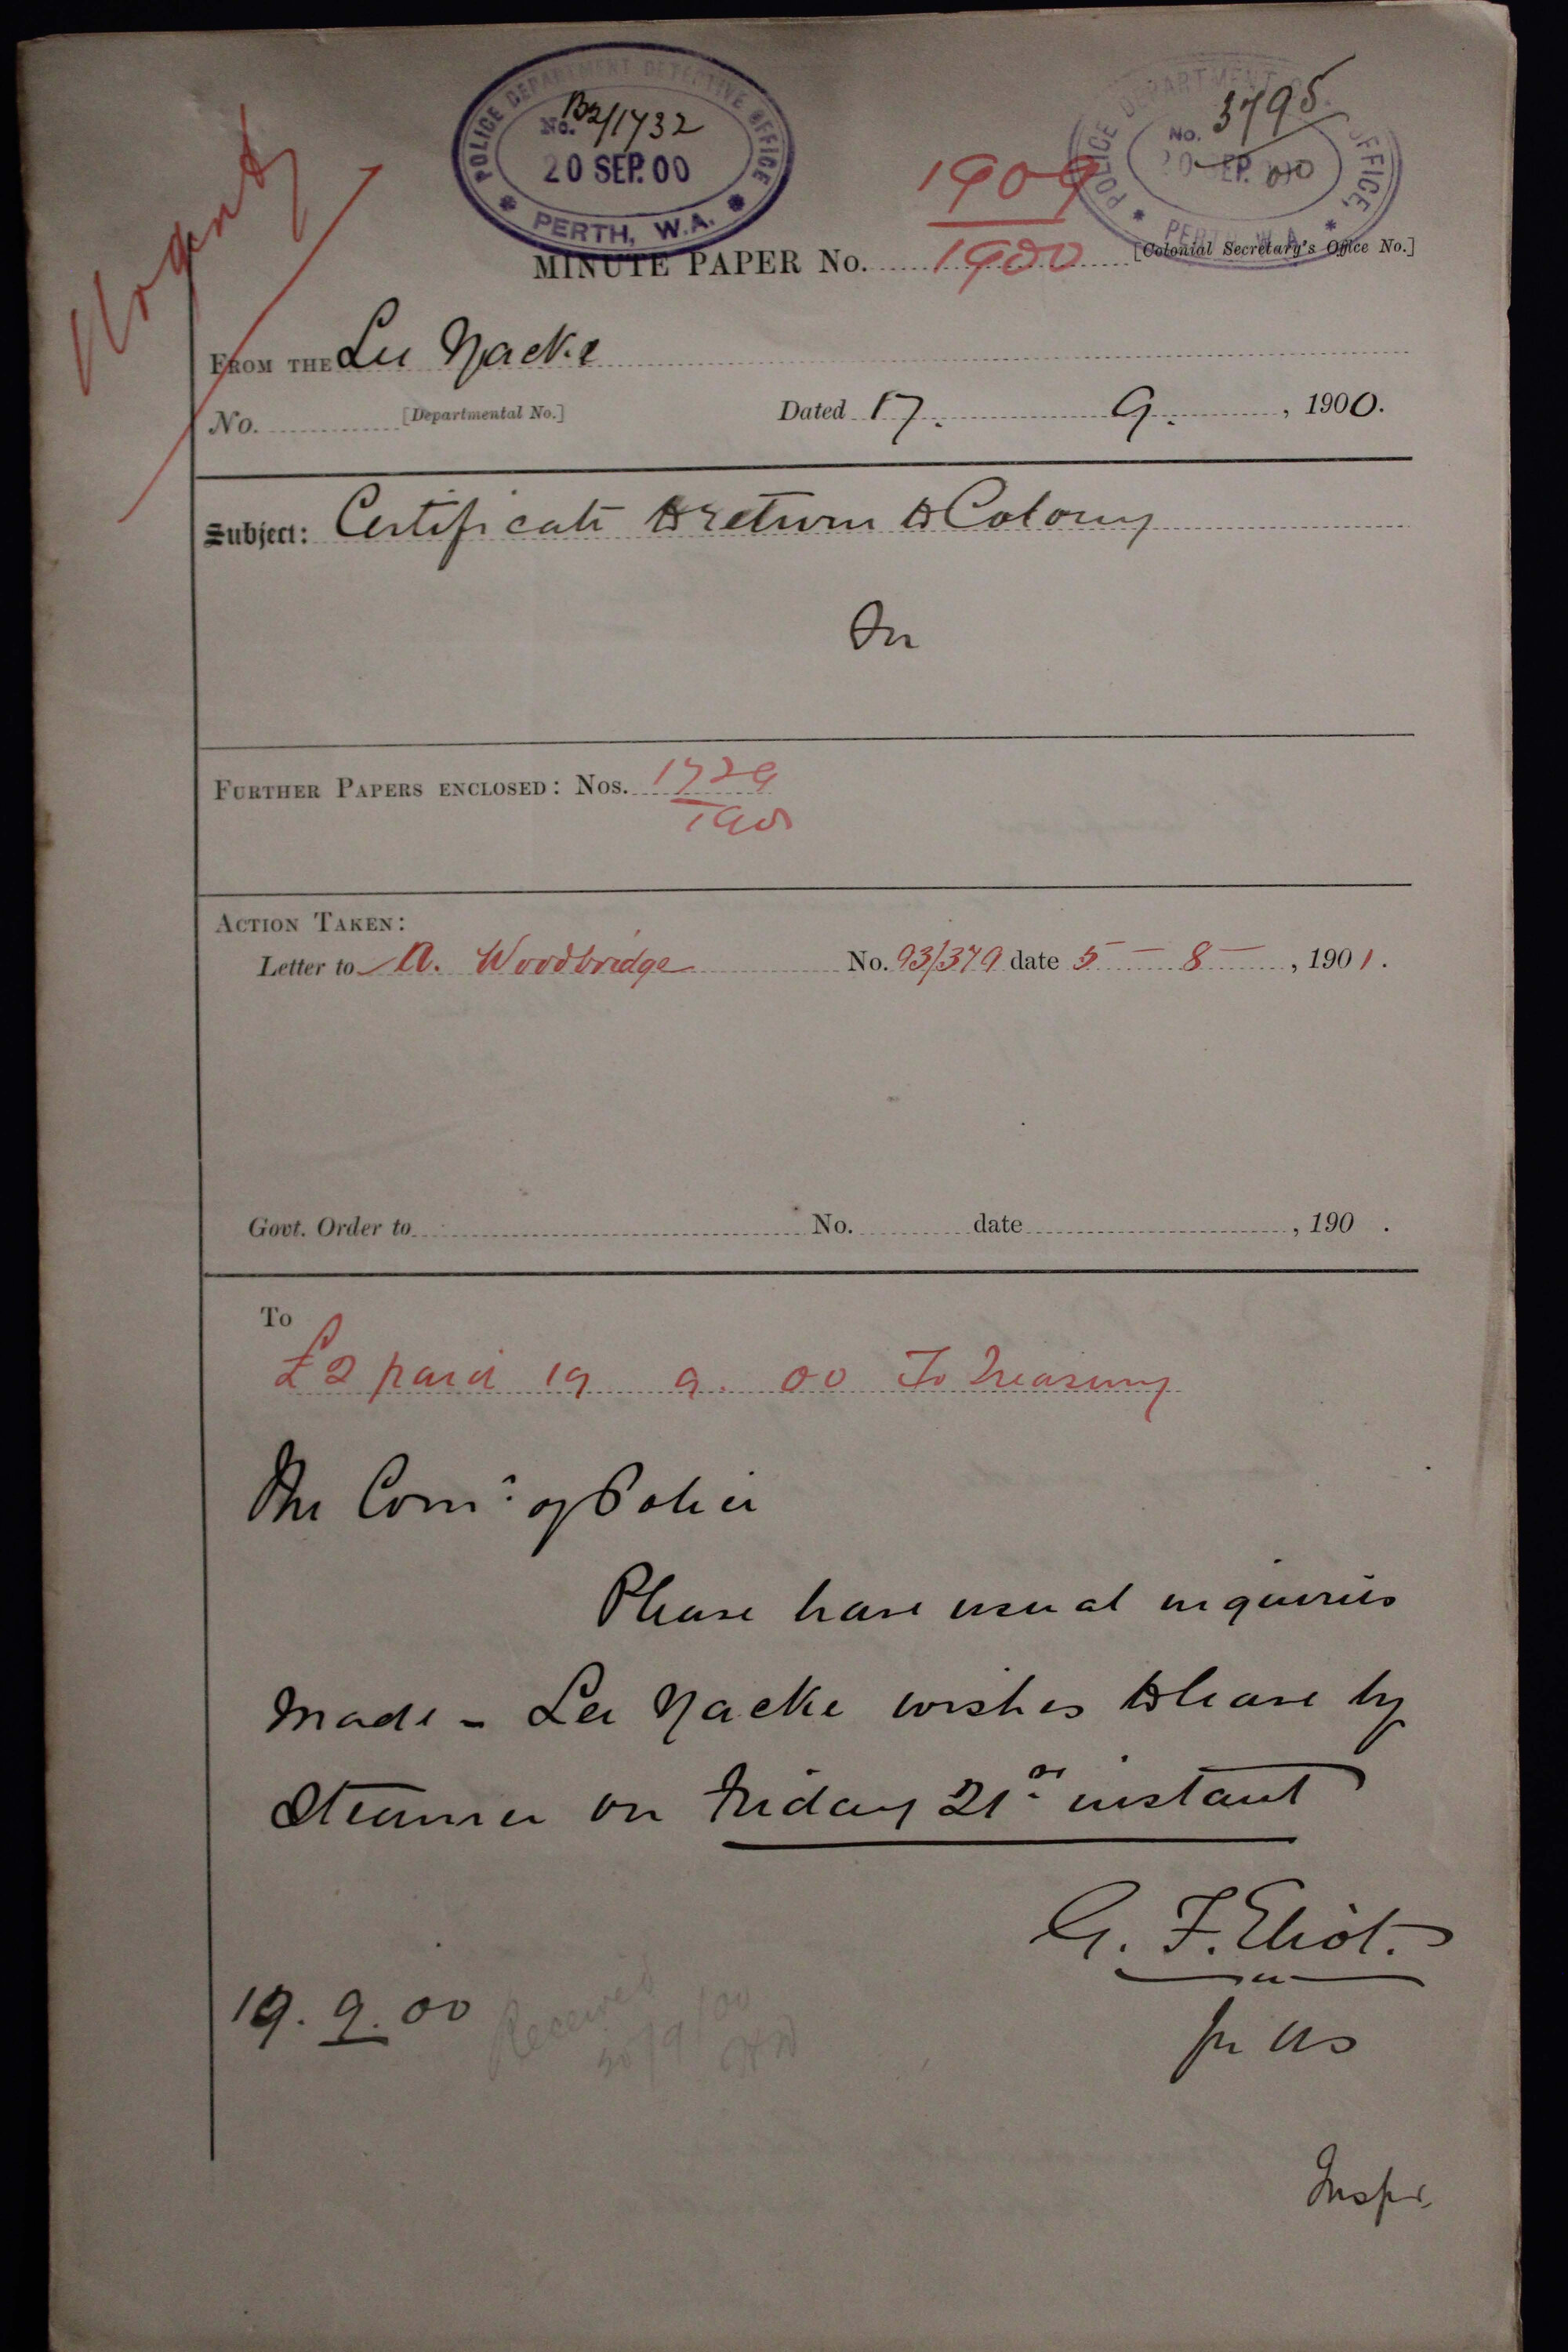 Urgent
POLICE DEPARTMENT DETECTIVE OFFICE
No. B2/1732
20 SEP. 00
PERTH, W.A.
POLICE DEPARTMENT OFFICE
No. 3795
20 SEP. 00
PERTH W.A.
1909
MINUTE PAPER No. 1900 [Colonial Secretary's Office No.]
FROM THE Lee Yacke
No. [Departmental No.] Dated 17. 9. , 1900.
Subject: Certificate to return to Colony
FURTHER PAPERS ENCLOSED: Nos. 1729
1900
ACTION TAKEN:
Letter to A. Woodbridge No. 93/379 date 5 - 8 - , 1901.
Govt. Order to No. date , 190 .
To
£2 paid 19 9. 00 To Treasury
The Comr. of Police
Please have usual inquiries
made - Lee Yacke wishes to leave by
Steamer on Friday 21st instant
G. F. Eliot.
for US
19. 9. 00
Received
20/9/00
Inspr.